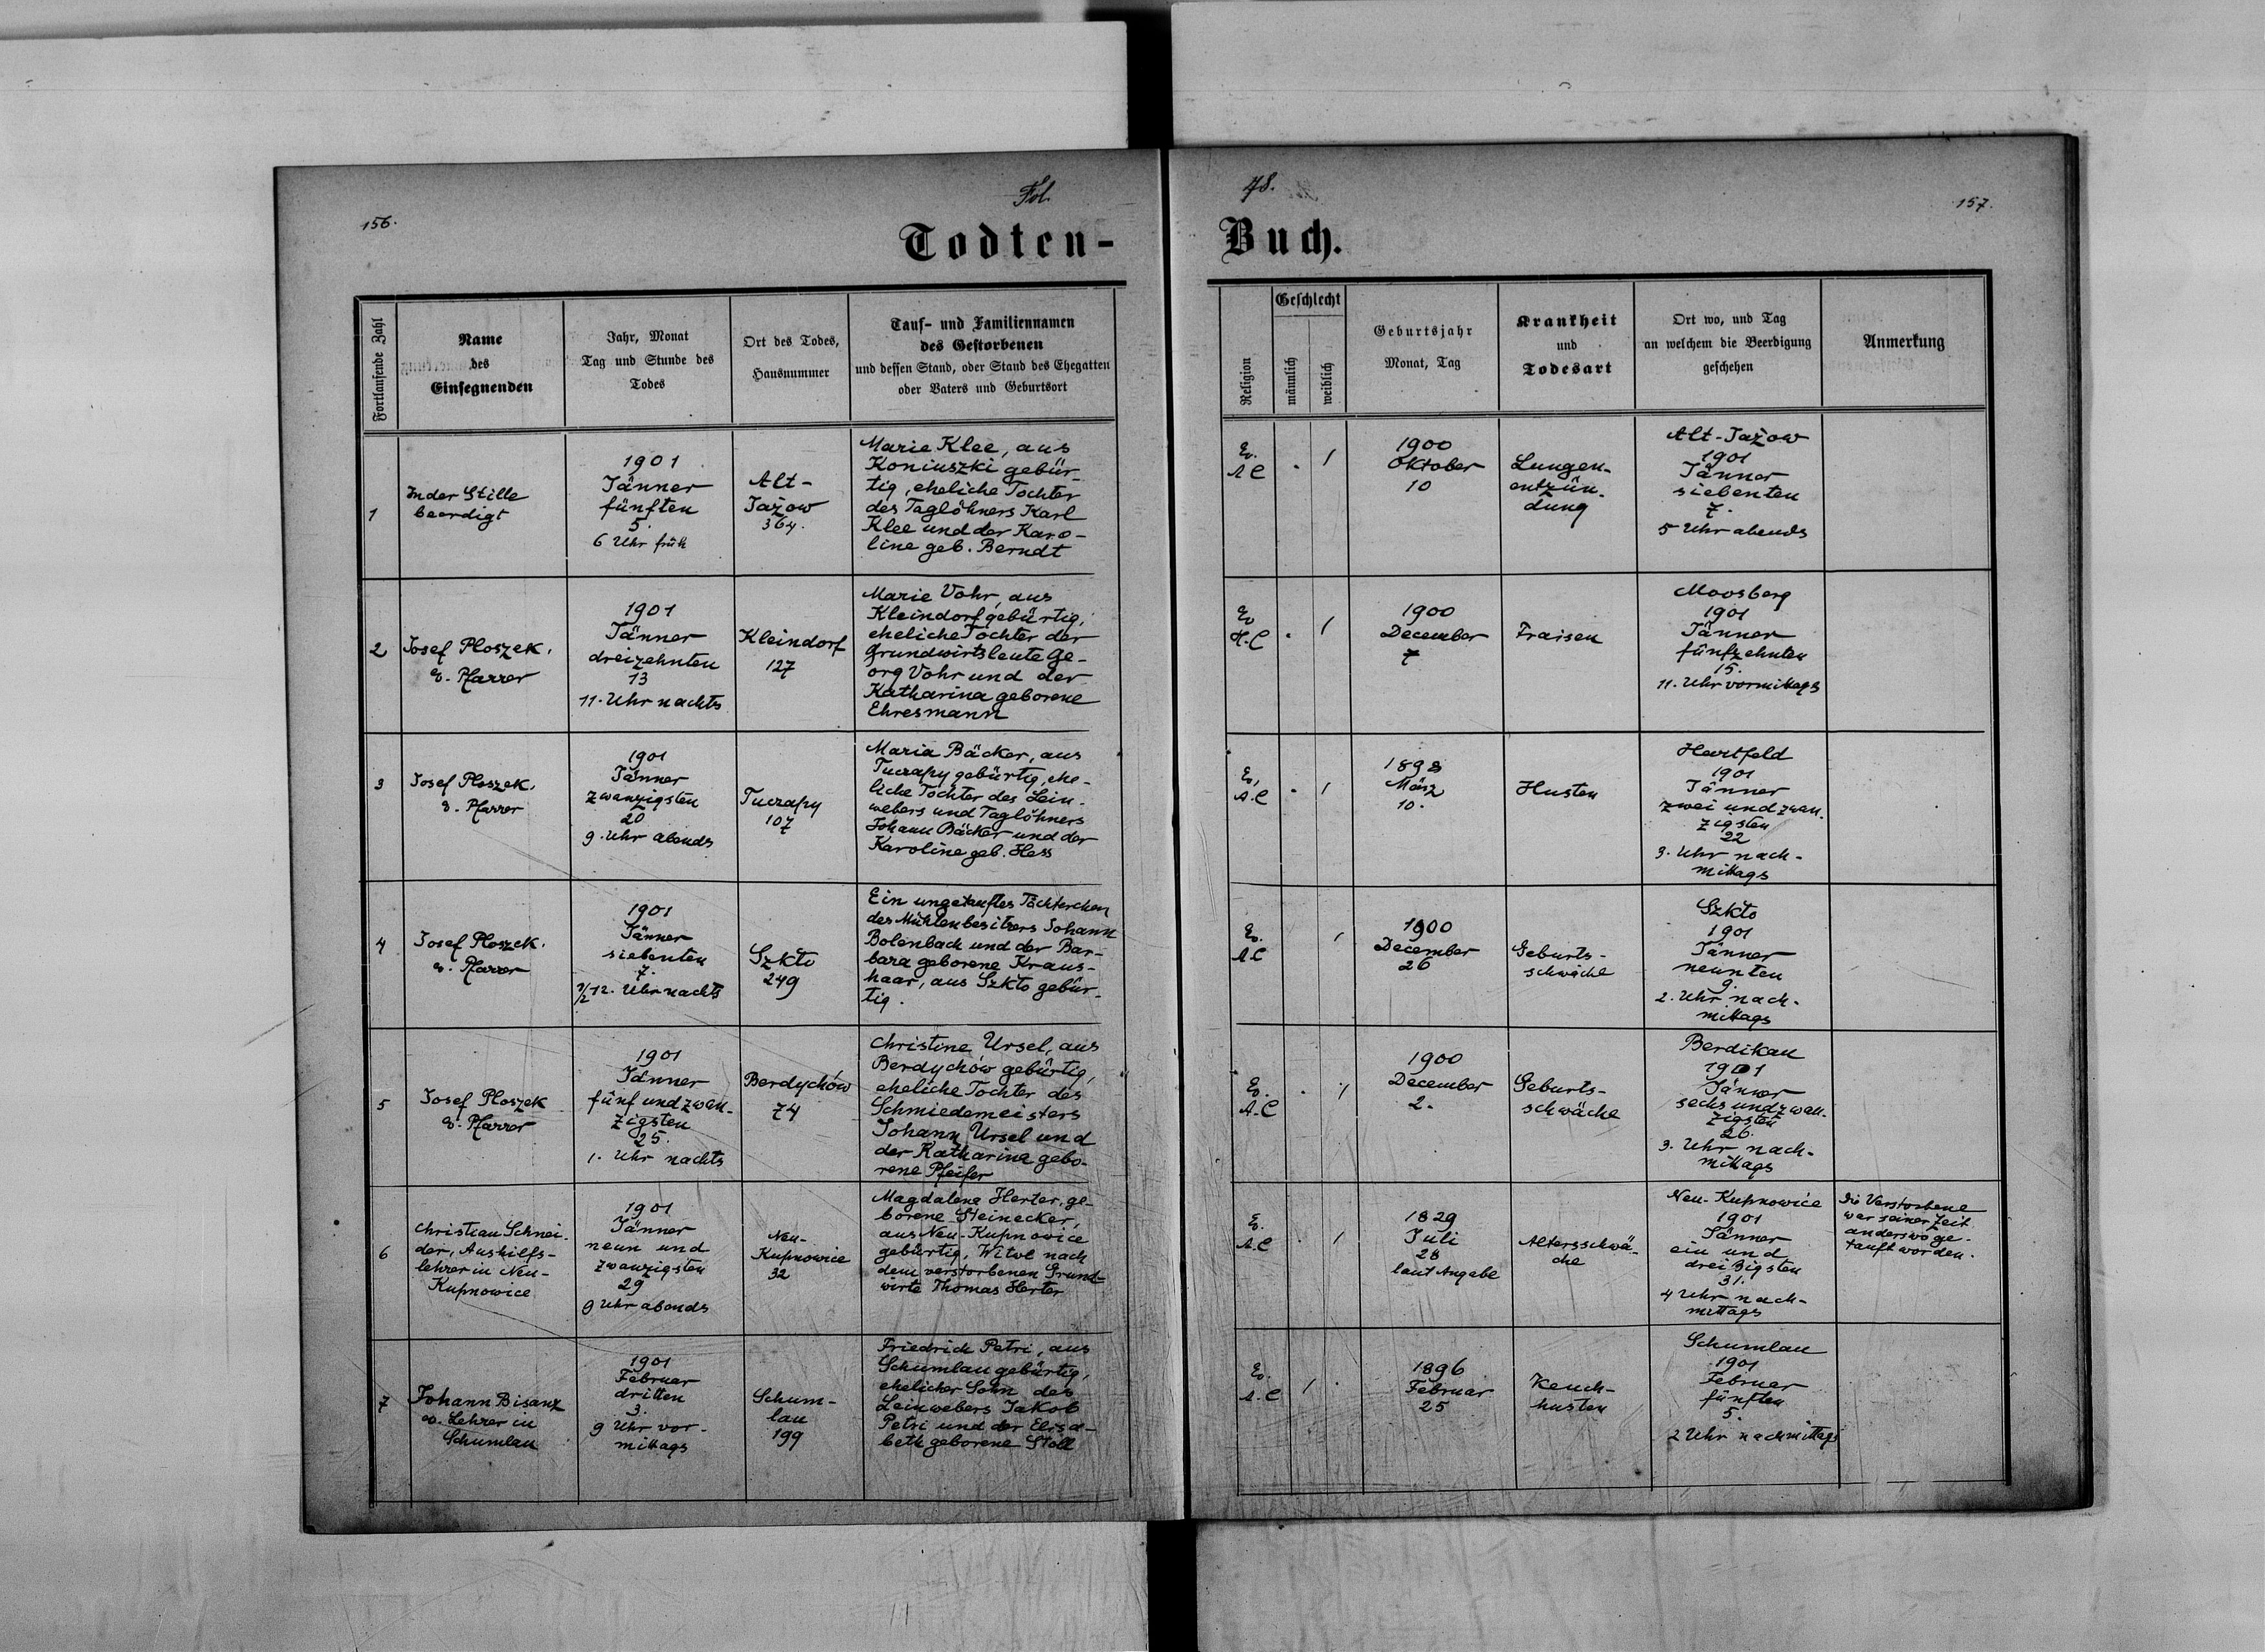 Fol.
78.
156.
157.
Todten-
Buch.
Fortlaufende Zahl
Name
des
Einsegnenden
Jahr, Monat
Tag und Stunde des
Todes
Ort des Todes,
Hausnummer
Tauf- und Familiennamen
des Gestorbenen
und dessen Stand, oder Stand des Ehegatten
oder Vaters und Geburtsort
Religion
Geschlecht
männlich
weiblich
Geburtsjahr
Monat, Tag
Krankheit
und
Todesart
Ort wo, und Tag
an welchem die Beerdigung
geschehen
Anmerkung
1
In der Stille
beerdigt
1901
Jänner
fünften
5.
6 Uhr früh
Alt-
Jażow
364.
Marie Klee, aus
Koniuszki gebür-
tig, eheliche Tochter
des Taglöhners Karl
Klee und der Karo-
line geb. Berndt
Ev.
A C
1
1900
Oktober
10
Lungen-
entzün-
dung
Alt-Jażow
1901
Jänner
siebenten
7.
5 Uhr abends
2
Josef Ploszek.
ev. Pfarrer
1901
Jänner
dreizehnten
13
11. Uhr nachts
Kleindorf
127
Marie Vohr, aus
Kleindorf gebürtig,
eheliche Tochter der
Grundwirtsleute Ge-
org Vohr und der
Katharina geborene
Ehresmann
Ev
H. C
1
1900
December
7
Fraisen
Moosberg
1901
Jänner
fünfzehnten
15.
11. Uhr vormittags
3
Josef Ploszek.
ev. Pfarrer
1901
Jänner
zwanzigsten
20
9. Uhr abends
Tuczapy
107
Maria Bäcker, aus
Tuczapy gebürtig, ehe-
liche Tochter des Lein-
webers und Taglöhners
Johann Bäcker und der
Karoline geb. Hess
Ev.
A. C
1
1898
März
10.
Husten
Hartfeld
1901
Jänner
zwei und zwan-
zigsten
22
3. Uhr nach-
mittags
4
Josef Ploszek.
ev. Pfarrer
1901
Jänner
siebenten
7.
1/2 12. Uhr nachts
Szkto
249
Ein ungetauftes Töchterchen
des Mühlenbesitzers Johann
Bolenbach und der Bar-
bara geborene Kraus-
haar, aus Szkto gebür-
tig.
Ev.
A. C
1
1900
December
26
Geburts-
schwäche
Szkto
1901
Jänner
neunten
9.
2. Uhr nach-
mittags
5
Josef Ploszek
ev. Pfarrer
1901
Jänner
fünf und zwan-
zigsten
25.
1. Uhr nachts
Berdychów
74
Christine Ursel, aus
Berdychów gebürtig,
eheliche Tochter des
Schmiedemeisters
Johann Ursel und
der Katharina gebo-
rene Pfeifer
Ev.
A. C
1
1900
December
2.
Geburts-
schwäche
Berdikau
1901
Jänner
sechs und zwan-
zigsten
26.
3. Uhr nach-
mittags
6
Christian Schnei-
der, Aushilfs-
lehrer in Neu-
Kupnowice
1901
Jänner
neun und
zwanzigsten
29
9 Uhr abends
Neu-
Kupnowice
32
Magdalena Herter, ge-
borene Steinecker,
aus Neu-Kupnowice
gebürtig, Witwe nach
dem verstorbenen Grund-
wirte Thomas Herter
Ev.
A. C
1
1829
Juli
28
laut Angabe
Altersschwä-
che
Neu-Kupnowice
1901
Jänner
ein und
dreißigsten
31.
4 Uhr nach-
mittags
Die Verstorbene
war seiner Zeit
anderswo ge-
tauft worden.
7
Johann Bisanz
ev. Lehrer in
Schumlau
1901
Februar
dritten
3.
9 Uhr vor-
mittags
Schum-
lau
199
Friedrich Petri, aus
Schumlau gebürtig,
ehelicher Sohn des
Leinwebers Jakob
Petri und der Elisa-
beth geborene Stoll
Ev.
A. C
1
1896
Februar
25
Keuch-
husten
Schumlau
1901
Februar
fünften
5.
2 Uhr nachmittags